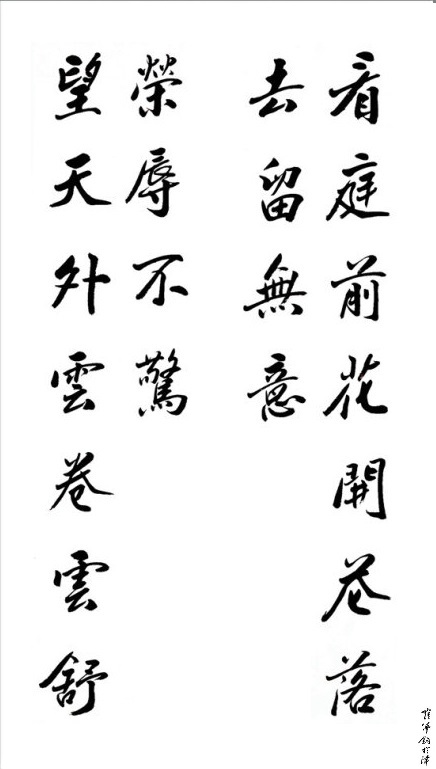 看庭前花開花落
去留無意
榮辱不驚
望天外雲卷雲舒